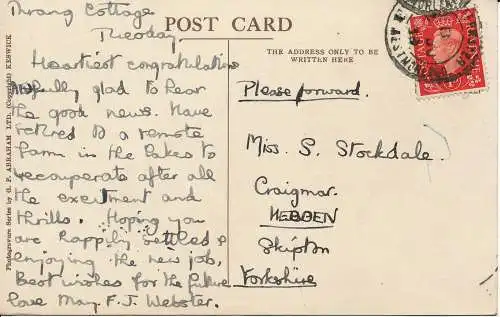 Thrang Cottage
Tuesday.
Heartiest congratulations
Awfully glad to hear
the good news. Have
retired to a remote
farm in the Lakes to
recuperate after all
the excitment and
thrills. Hoping you
are happily settled &
enjoying the new job.
Best wishes for the future
love May. F.J. Webster.
Photogravure Series by G. P. ABRAHAM LTD. (Copyright) KESWICK
POST CARD
THE ADDRESS ONLY TO BE
WRITTEN HERE
Please forward.
Miss. S. Stockdale.
Craigmar.
HEBDEN
Skipton
Yorkshire